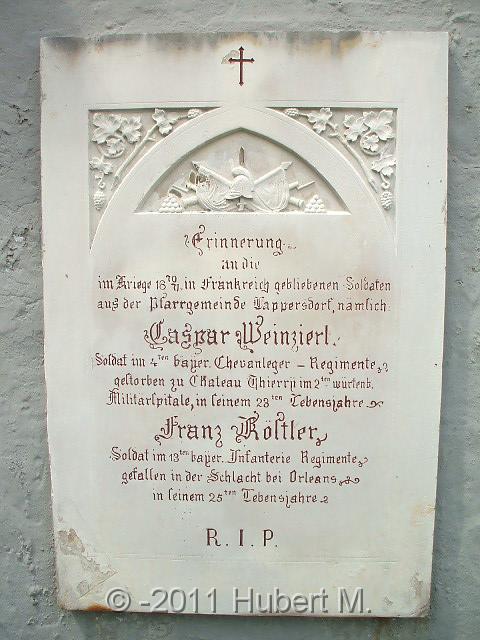 Erinnerung
an die
im Kriege 18 70/71. in Frankreich gebliebenen Soldaten
aus der Pfarrgemeinde Lappersdorf, nämlich:
Caspar Weinzierl.
Soldat im 4ten bayer. Chevauleger - Regimente,
gestorben zu Chateau Thierry im 2ten würtenb.
Militärspitale, in seinem 23ten Lebensjahre.
Franz Röstler,
Soldat im 13ten bayer. Infanterie Regimente,
gefallen in der Schlacht bei Orleans,
in seinem 25ten Lebensjahre.
R. I. P.
© -2011 Hubert M.